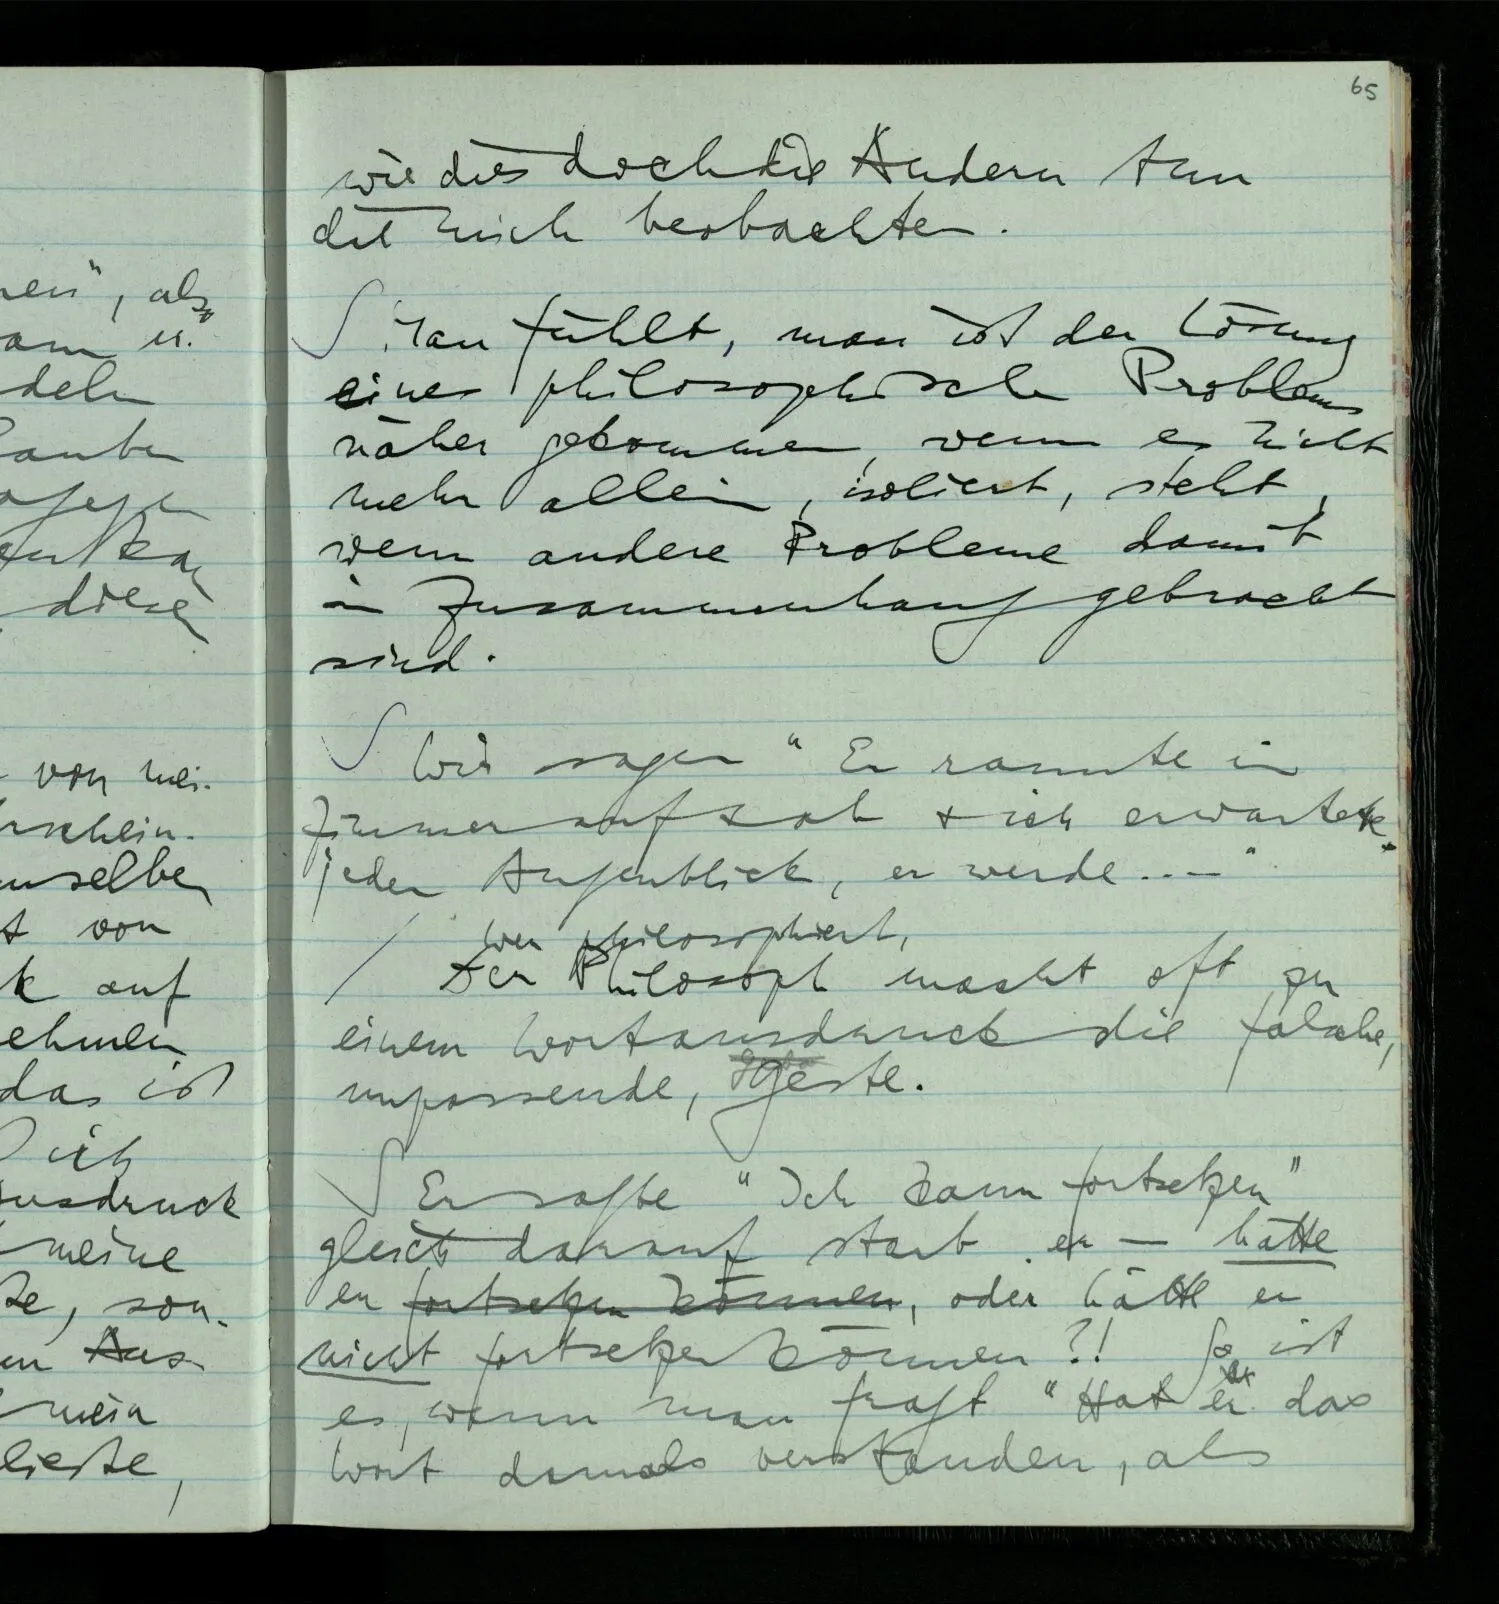 65
wie dies doch die Andern tun
die mich beobachten.
Man fühlt, man ist der Lösung
eines philosophische Problems
näher gekommen, wenn es nicht
mehr allein, isoliert, steht,
wenn andere Probleme damit
in Zusammenhang gebracht
sind.
Wir sagen "Er rannte im
Zimmer auf & ab & ich erwartete
jeden Augenblick, er werde..—"
Wer philosophiert,
Der Philosoph macht oft zu
einem Wortausdruck die falsche,
unpassende, Geste.
Er sagte "Ich kann fortsetzen"
gleich darauf starb er — hätte
er fortsetzen können, oder hätte er
nicht fortsetzen können?! So ist
es, wenn man fragt "Hat er das
Wort damals verstanden, als
nen", als
am u.
deln
diese
von mei-
rschein-
mselben
t von
k auf
ehmen
das ist
ich
Ausdruck
meine
te, son-
en Aus-
mein
ließe,